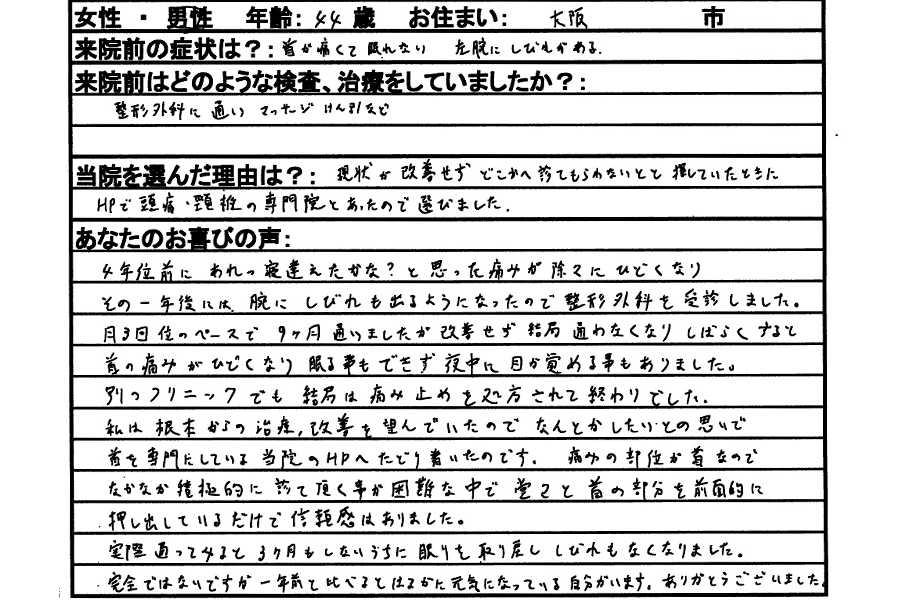 女性 ・ 男性 年齢: 44 歳 お住まい: 大阪 市
来院前の症状は?: 首が痛くて眠れない 左腕にしびれがある.
来院前はどのような検査、治療をしていましたか?:
整形外科に通い マッサージ けん引など
当院を選んだ理由は?: 現状が改善せず どこかへ診てもらわないとと 探していたときに
HPで頭痛・頚椎の専門院とあったので選びました.
あなたのお喜びの声:
4年位前に あれっ寝違えたかな?と思った痛みが除々にひどくなり
その一年後には、腕にしびれも出るようになったので整形外科を受診しました。
月3回位のペースで 9ヶ月通いましたが改善せず結局通わなくなり しばらくすると
首の痛みがひどくなり 眠る事もできず 夜中に目が覚める事もありました。
別のクリニックでも 結局は痛み止めを処方されて終わりでした.
私は根本からの治療,改善を望んでいたので なんとかしたいとの思いで
首を専門にしている当院のHPへたどり着いたのです。 痛みの部位が首なので
なかなか積極的に診て頂く事が困難な中で 堂々と首の部分を前面的に
押し出しているだけで信頼感はありました。
実際通ってみると 3ヶ月もしないうちに眠りを取り戻し しびれもなくなりました。
完全ではないですが一年前と比べるとはるかに元気になっている自分がいます。ありがとうございました。